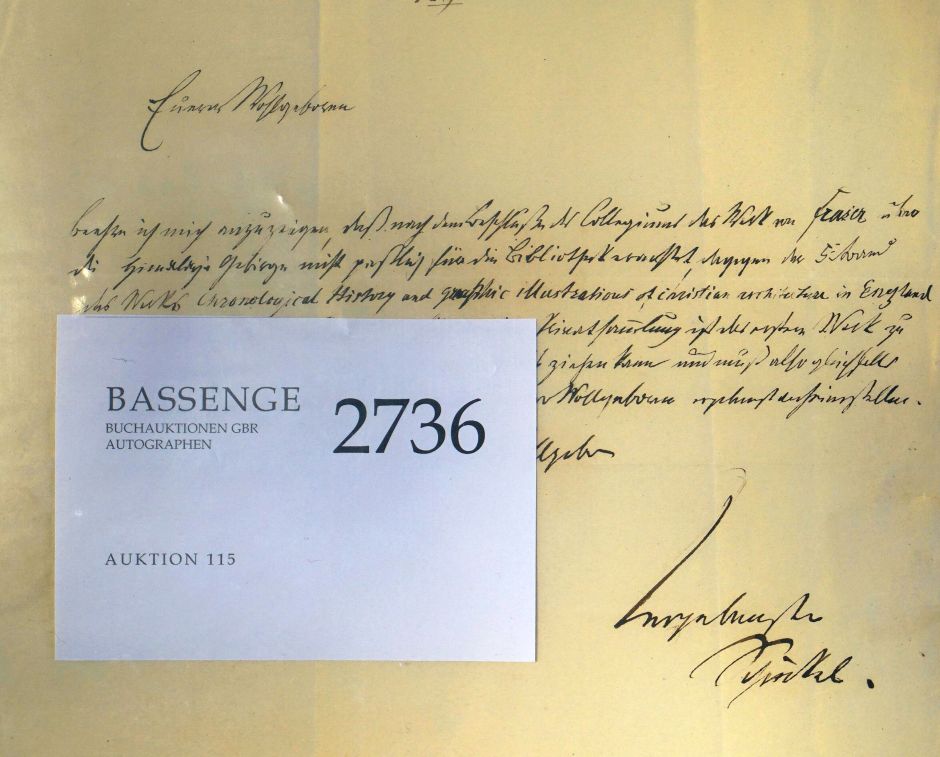 Euerer Wohlgeboren
beehre ich mich anzuzeigen, daß nach dem Beschlusse des Collegiums das Werk von Fraser über
die Himalaja Gebirge nicht paßlich für die Bibliothek erachtet, dagegen der 5t Band
des Werks Chronological History and graphic illustrations of christian architecture in England
Privatsammlung ist das erstere Werk zu
ziehen kann und muß also gleichfalls
Wohlgeboren ergebenst anheimstellen.
BASSENGE
BUCHAUKTIONEN GBR
AUTOGRAPHEN
2736
AUKTION 115
ergebenster
Schinkel.